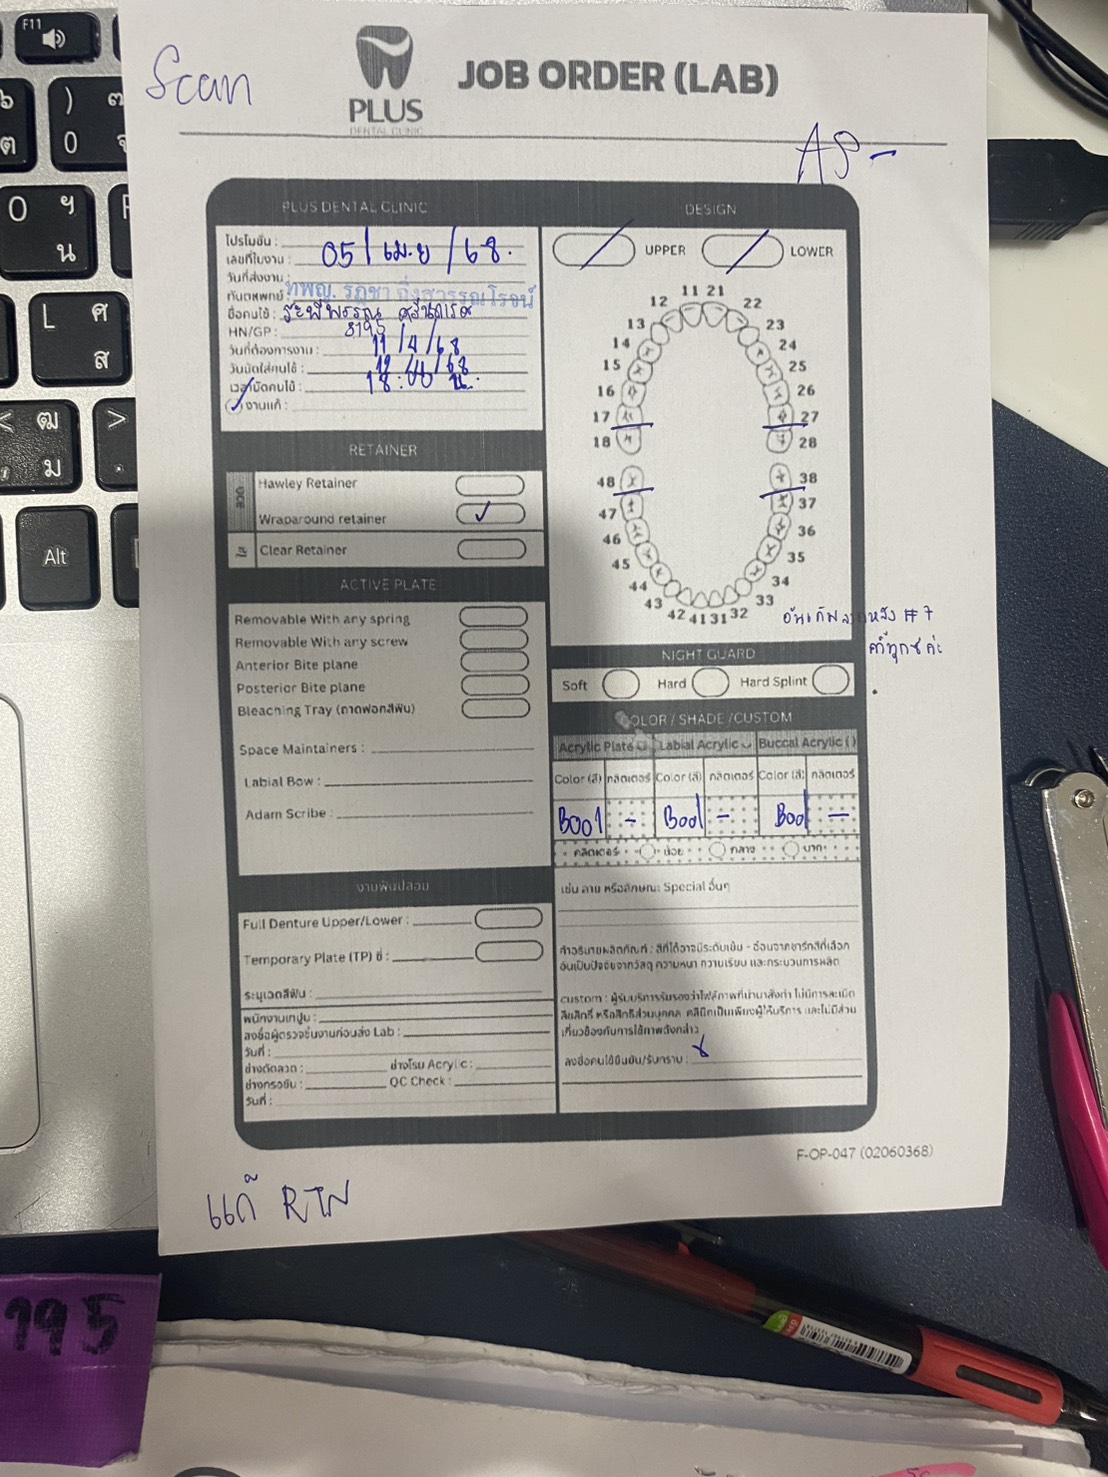 Scan
PLUS
DENTAL CLINIC
JOB ORDER (LAB)
PLUS DENTAL CLINIC
โปรโมชั่น :
เลขที่ใบงาน :
05 / เม.ย / 68.
วันที่ส่งงาน :
ทันตแพทย์ : ทพญ.
ชื่อคนไข้ :
HN/GP : 8195
วันที่ต้องการงาน : 11/4/68
วันนัดใส่คนไข้ : 12/4/68
เวลานัดคนไข้ : 18:00 น.
งานแก้ :
RETAINER
Hawley Retainer
Wraparound retainer
ใส
Clear Retainer
ACTIVE PLATE
Removable With any spring
Removable With any screw
Anterior Bite plane
Posterior Bite plane
Bleaching Tray (ถาดฟอกสีฟัน)
Space Maintainers :
Labial Bow :
Adam Scribe :
งานฟันปลอม
Full Denture Upper/Lower :
Temporary Plate (TP) ซี่ :
ระบุเฉดสีฟัน :
พนักงานเทปูน :
ลงชื่อผู้ตรวจชิ้นงานก่อนส่ง Lab :
วันที่ :
ช่างดัดลวด :
ช่างโรย Acrylic :
ช่างกรอขัด :
QC Check :
วันที่ :
DESIGN
UPPER
LOWER
11 21
12 22
13 23
14 24
15 25
16 26
17 27
18 28
48 38
47 37
46 36
45 35
44 34
43 33
42 41 31 32
หลัง #7
ค่ะ
NIGHT GUARD
Soft
Hard
Hard Splint
COLOR / SHADE /CUSTOM
Acrylic Plate
Labial Acrylic
Buccal Acrylic ( )
Color (สี) กลิตเตอร์ Color (สี) กลิตเตอร์ Color (สี) กลิตเตอร์
B001 - B001 - B001 -
กลิตเตอร์ น้อย กลาง มาก
เช่น ลาย หรือลักษณะ Special อื่นๆ
คำอธิบายผลิตภัณฑ์ : สีที่ได้อาจมีระดับเข้ม - อ่อนจากชาร์ทสีที่เลือก
อันเป็นปัจจัยจากวัสดุ ความหนา ความเรียบ และกระบวนการผลิต
custom : ผู้รับบริการรับรองว่าไฟล์ภาพที่นำมาสั่งทำ ไม่มีการละเมิด
ลิขสิทธิ์ หรือสิทธิส่วนบุคคล คลินิกเป็นเพียงผู้ให้บริการ และไม่มีส่วน
เกี่ยวข้องกับการใช้ภาพดังกล่าว
ลงชื่อคนไข้ยืนยัน/รับทราบ :
F-OP-047 (02060368)
แก้ RTN
F11
0
L
Alt
195